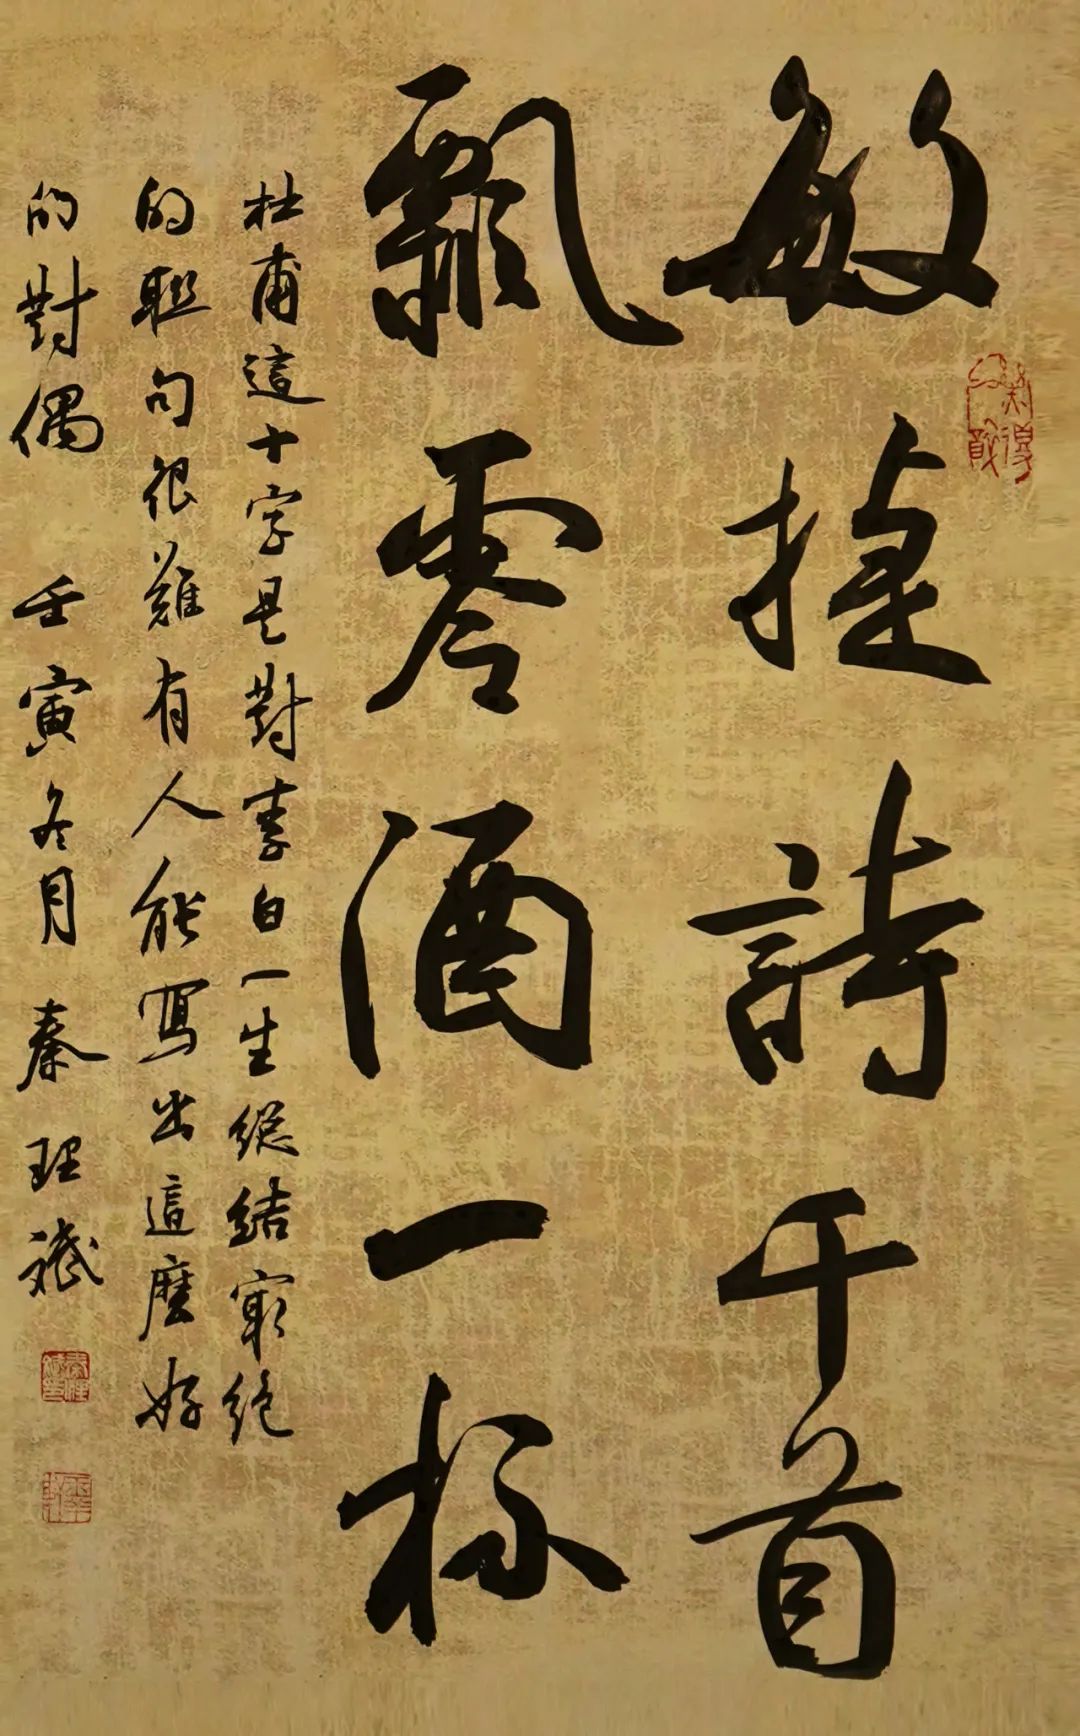 敏捷詩千首
飄零酒一杯
杜甫這十字是對李白一生總結窮絕
的聯句很難有人能寫出這麼好
的對偶 壬寅冬月 秦理斌